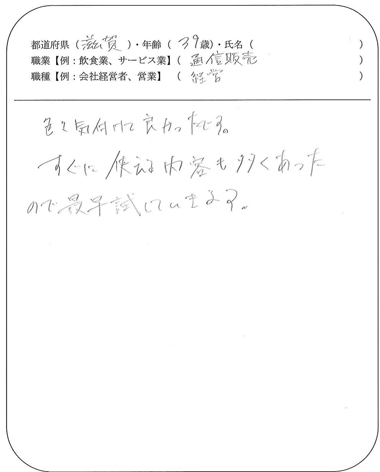 都道府県（滋賀）・年齢（39歳）・氏名（　　　　　　）
職業【例：飲食業、サービス業】（通信販売　　　　　　）
職種【例：会社経営者、営業】（経営　　　　　　）
色々気付けて良かったです。
すぐに使える内容も多くあった
ので最早試しています。